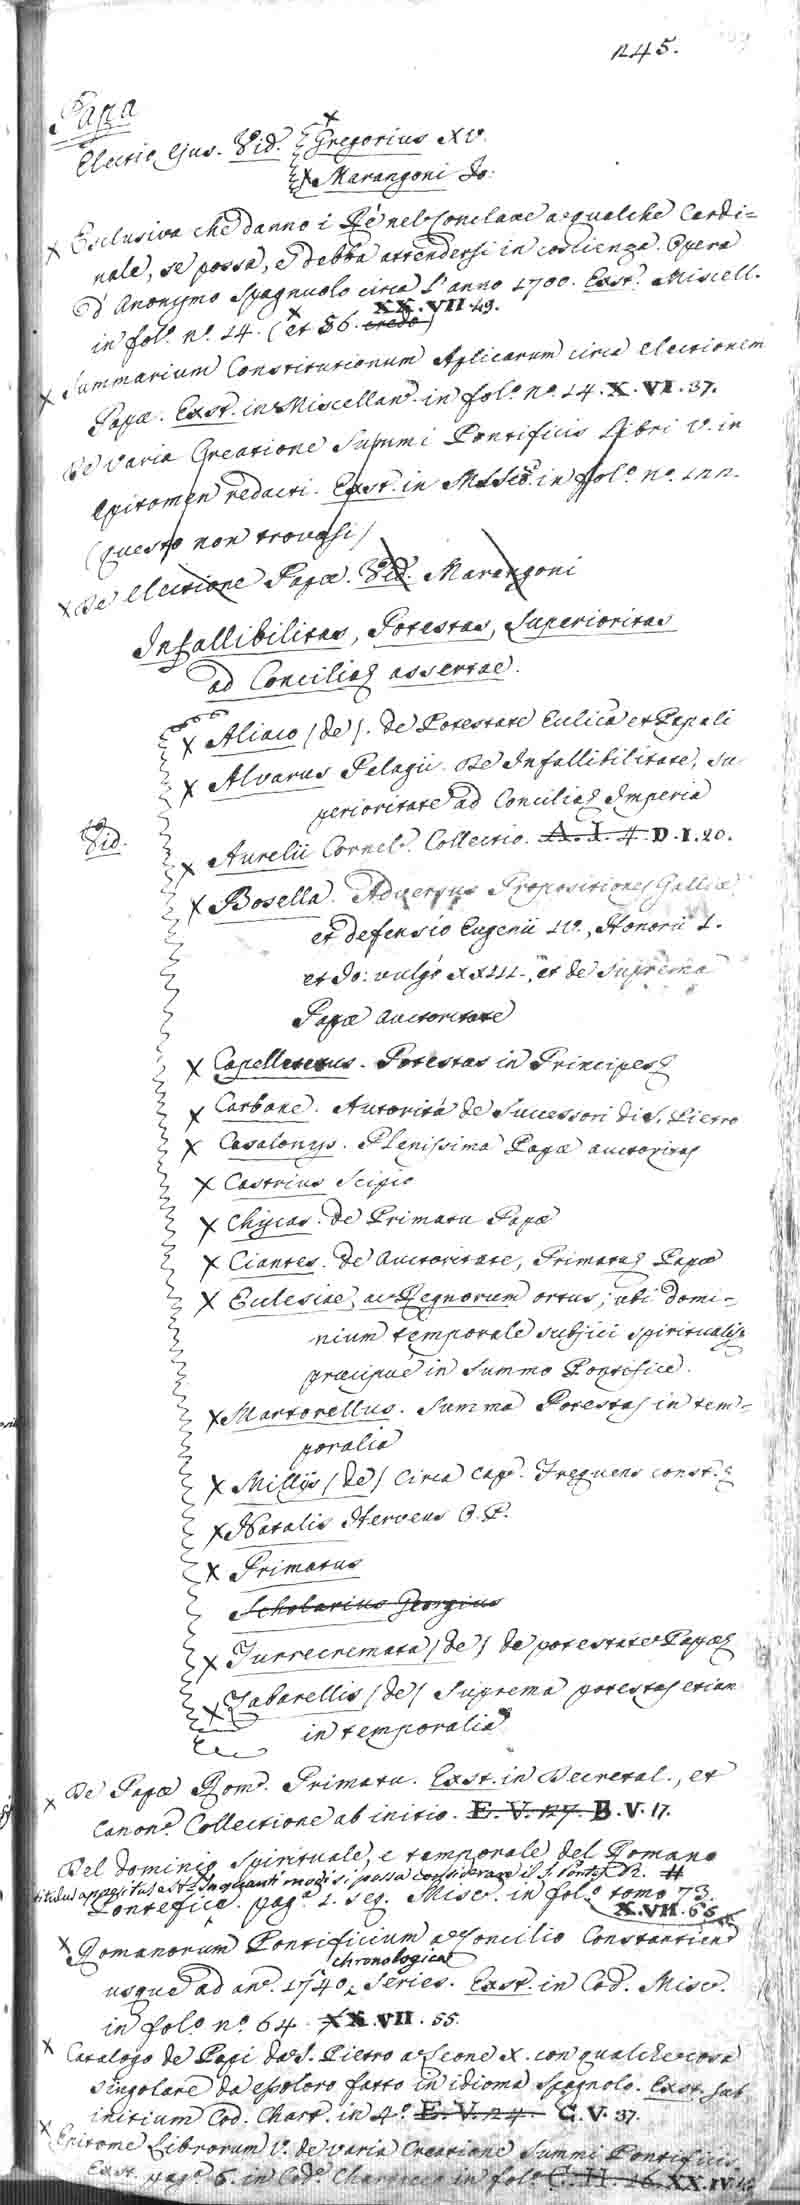 1245.
Papa
Electio Ejus. Vid. Gregorius XV.
x Marangoni Jo:
x Esclusiva che danno i Rè nel Conclave a qualche Cardi=
nale, se possa, e debba attendersi in coscienza. Opera
d'Anonymo Spagnuolo circa l'anno 1700. Exst. Miscell.
in fol.º nº. 14. (et 56. credo) XX.VII.49.
x Summarium Constitutionum Aplicarum circa electionem
Papæ. Exst. in Miscellan. in fol.º nº. 14. X.VI.37.
De varia Creatione Summi Pontificis Libri V. in
epitomen redacti. Exst. in Missc. in fol.º nº. 122.
(questo non trovasi)
x De electione Papæ. Vid. Marangoni
Infallibilitas, Potestas, Superioritas
ad Concilia assertae.
x Aliaco (de). de Potestate Eccl.ica et Papali
x Alvarus Pelagii. De Infallibilitate, su-
perioritate ad Concilia, Imperia
Vid.
x Aurelii Cornel. Collectio. A.I.4 D.I.20.
x Bosella. Adversus Propositiones Galliæ
et defensio Eugenii IV., Honorii I.
et Jo: vulgò XXIII., et de Suprema
Papæ auctoritate
x Capelletetus. Potestas in Principes
x Carbone. Autorità de Successori di S. Pietro
x Casalonys. Plenissima Papæ auctoritas
x Castrius Scipio
x Chycas. de Primatu Papæ
x Ciantes. de auctoritate, Primatu Papæ
x Eclesiae, ac Regnorum ortus; ubi domi-
nium temporale subjici spirituali,
præcipuè in Summo Pontifice.
x Martorellus. Summa Potestas in tem-
poralia
x Milliis (de) Circa cap. Frequens const.
x Natalis Herveus O.P.
x Primatus
Scholarius Georgius
x Turrecremata (de) de potestate Papæ
x Zabarellis (de) Suprema potestas etiam
in temporalia
x De Papæ Rom. Primatu. Exst. in Decretal., et
Canon. Collectione ab initio. E.V.27. B.V.17.
Del dominio spirituale, e temporale del Romano
titulus appositus est: In quanti modi si possa considerare il S. Pontef. R. #
Pontefice. pag.ª 1. seq. Misc. in fol.º tomo 73.
X.VII.65
x Romanorum Pontificum a Concilio Constantien
chronologica
usque ad an. 1740. Series. Exst. in Cod. Misc.
in fol.º nº. 64. XX.VII.55.
x Catalogo de Papi da S. Pietro a Leone X. con qualche cosa
singolare da essoloro fatto in idioma spagnolo. Exst. sub
initium Cod. Chart. in 4º. E.V.24. C.V.37.
x Epitome Librorum V. de varia Creatione Summi Pontificis.
Exst. pag. 6. in Cod. Chartaceo in fol.º C.II.26. XX.IV.